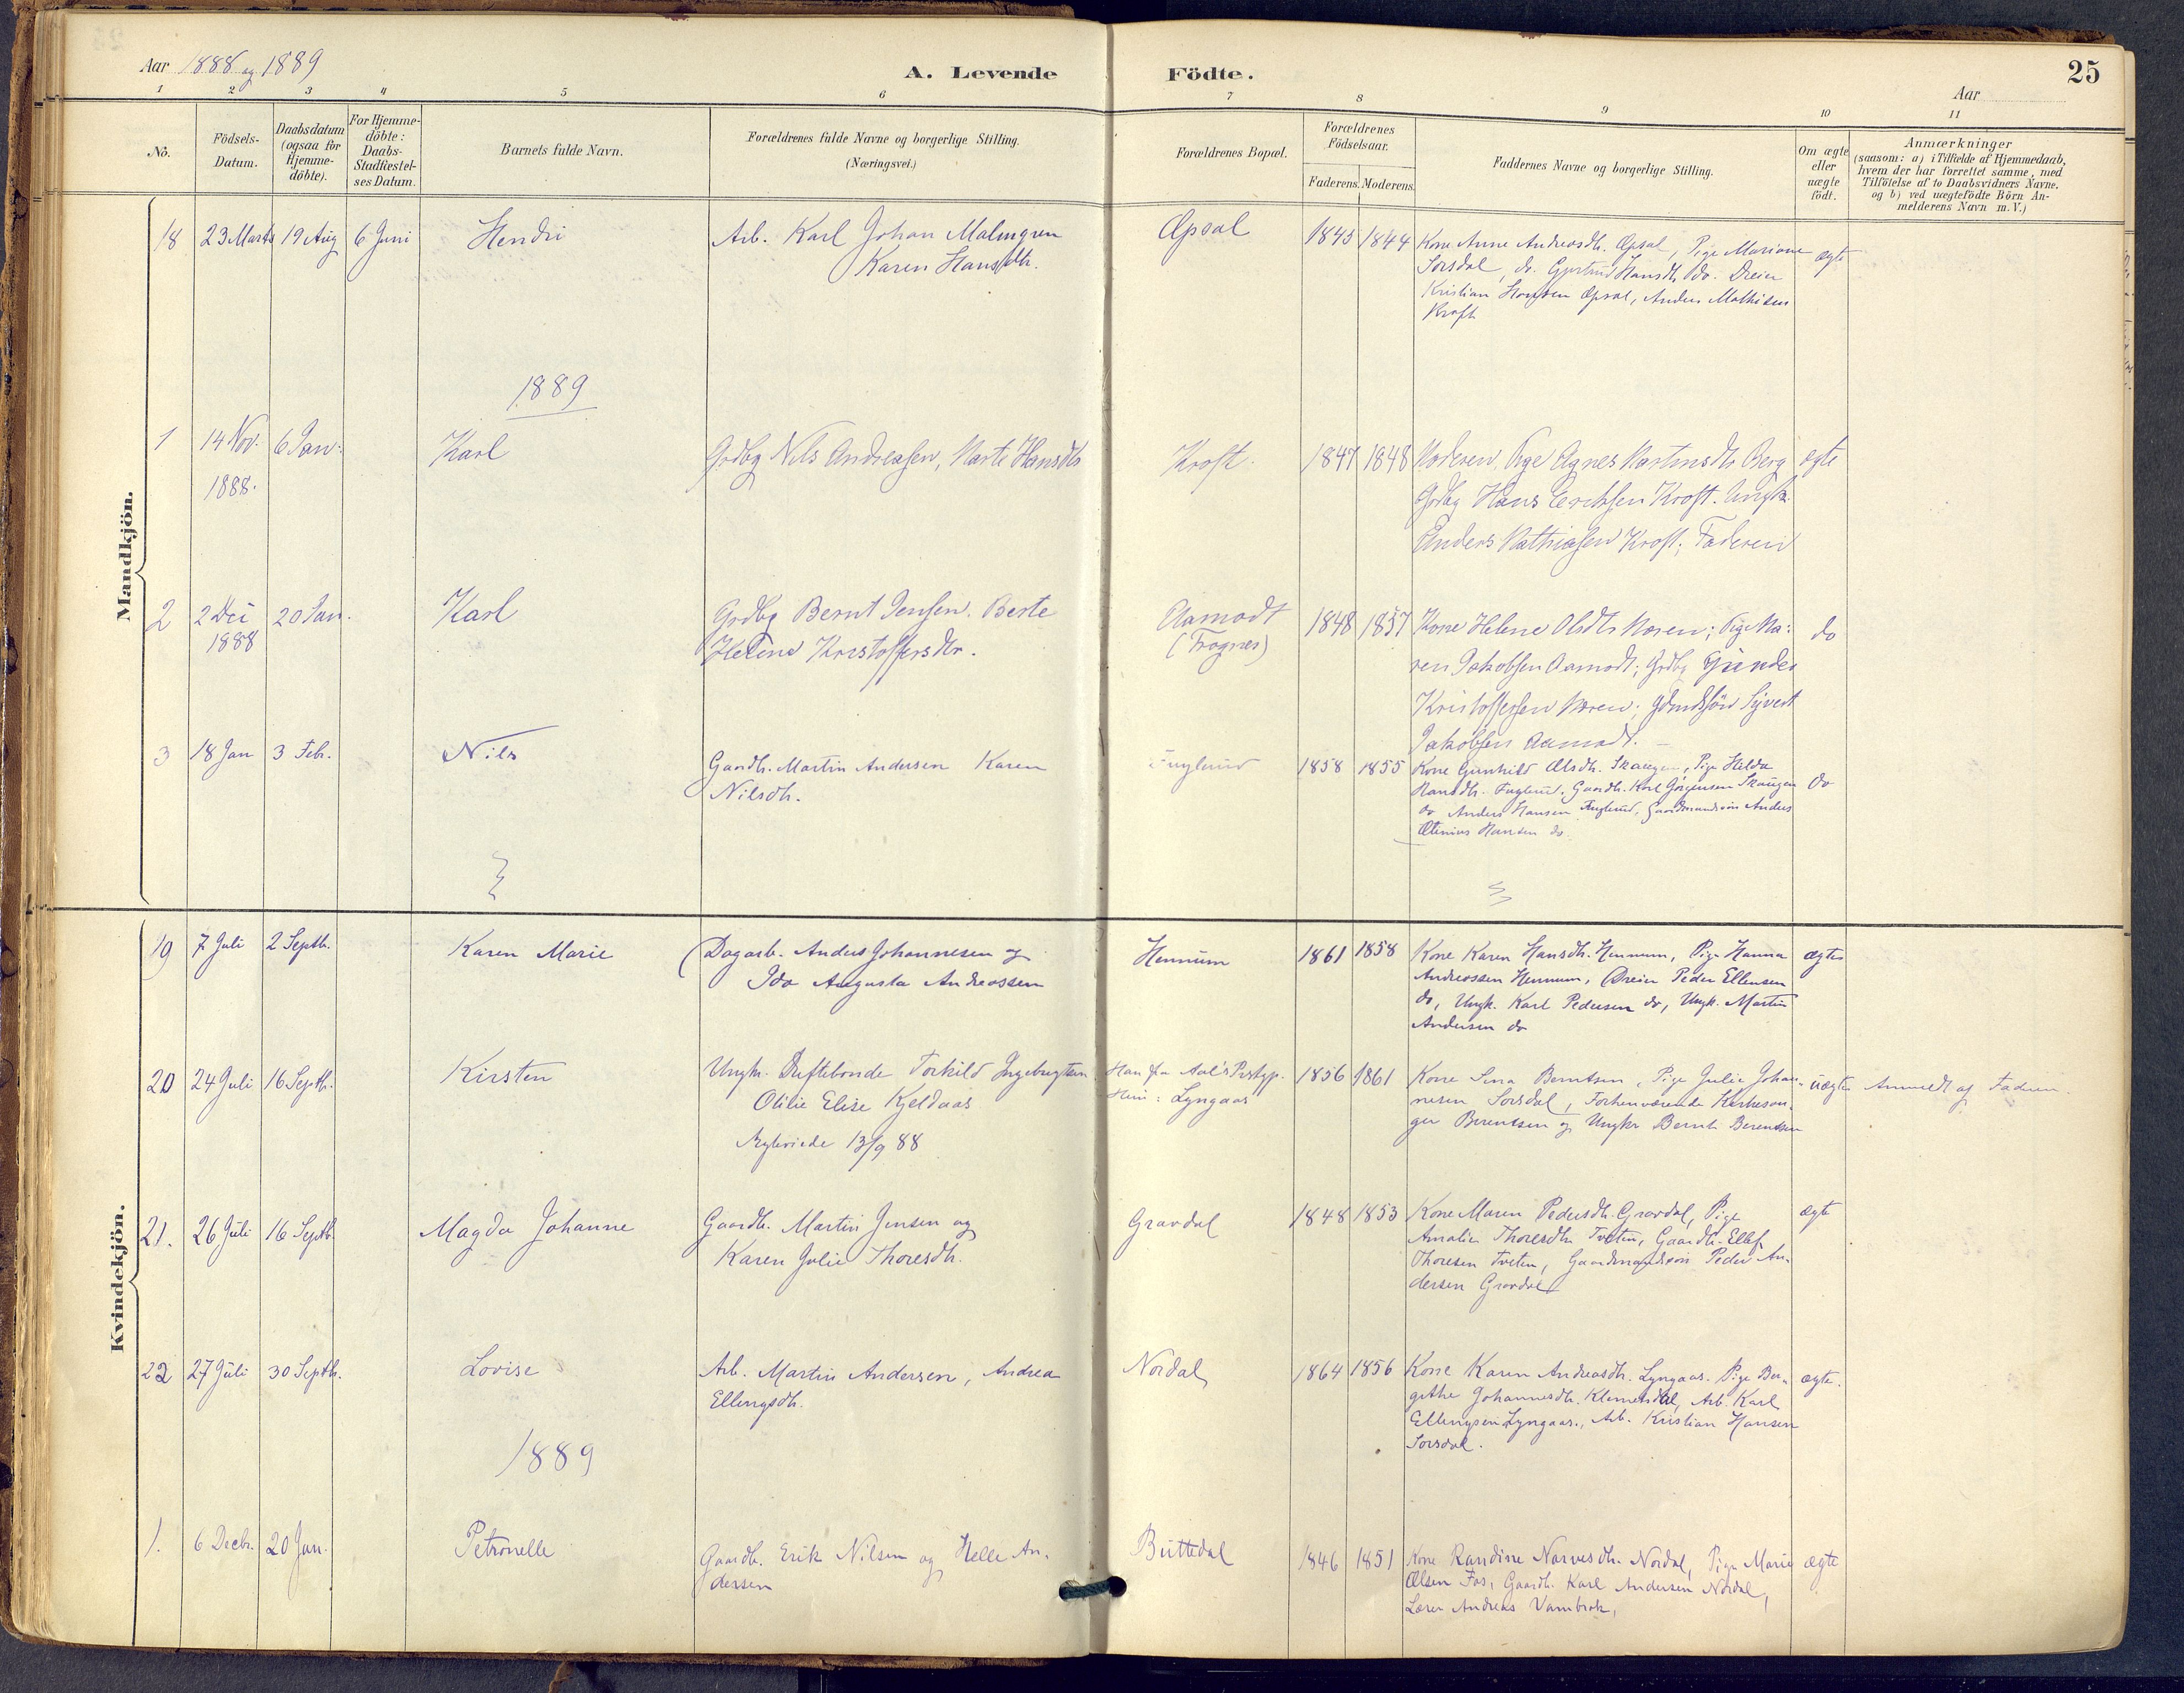 Aar 1888 og 1889
A. Levende Födte.
Aar
25
1 2 3 4 5 6 7 8 9 10 11
No.
Födsels-
Datum.
Daabsdatum
(ogsaa for
Hjemme-
döbte).
For Hjemme-
döbte:
Daabs-
Stadfæstel-
ses Datum.
Barnets fulde Navn.
Forældrenes fulde Navne og borgerlige Stilling.
(Næringsvei.)
Forældrenes Bopæl.
Forældrenes
Födselsaar.
Faderens. Moderens.
Faddernes Navne og borgerlige Stilling.
Om ægte
eller
uægte
födt.
Anmærkninger
(saasom: a) i Tilfælde af Hjemmedaab,
hvem der har forrettet samme, med
Tilföielse af to Daabsvidners Navne.
og b) ved uægtefödte Börn An-
melderens Navn m. V.)
Mandkjön.
18 23 Marts 19 Aug 6 Juni Hendri
Arb. Karl Johan Malmgren
Karen Hansdtr.
Opsal 1845 1844
Kone Anne Andreasdtr. Opsal, Pige Mariane
Sorsdal, do. Gjertrud Hansdtr. do. Dreier
Kristian Hansen Opsal, Anders Mathisen
Kroft
ægte
1889
1 14 Nov. 6 Jan:
1888.
Karl
Grdbg Nils Andreasen, Marte Hansdtr
Kroft. 1847 1848
Moderen, Pige Agnes Martinsdtr Berg
Grdbg Hans Erichsen Kroft. Ungk.
Anders Mathiasen Kroft; Faderen
ægte
2 2 Dec 20 Jan.
1888
Karl
Grdbg Bernt Jensen. Berte
Helene Kristoffersdtr.
Aamodt
(Frognes)
1848 1857
Kone Helene Olsdtr Moren; Pige Ma:
ren Jakobsen Aamodt; Grdbg Gunder
Kristoffersen Moren; Gdmdssön Syvert
Jakobsen Aamodt.
do
3 18 Jan 3 Feb. Nils
Gaardb. Martin Andersen Karen
Nilsdtr.
Fuglerud 1858 1855
Kone Gunhild Olsdtr. Skaugen, Pige Hilda
Hansdtr. Fuglerud. Gaardb. Karl Jörgensen Skaugen
do Anders Hansen Fuglerud, Gaardmandssön Anders
Otenius Hansen do.
do
Kvindekjön.
19 7 Juli 2 Septb. Karen Marie
Dagarb. Anders Johannesen og
Ida Augusta Andreassen
Hennum 1861 1858
Kone Karen Hansdtr. Hennum, Pige Hanna
Andreassen Hennum, Dreier Peder Ellensen
do, Ungk. Karl Pedersen do, Ungk. Martin
Andersen do
ægte
20 24 Juli 16 Septb. Kirsten
Ungkr. Torkild Ingebrigtsen
Otilie Elise Kjeldaas
Ægteviede 13/9 88
Han fra Aal's Prstgp.
Hun: Lyngaas
1856 1861
Kone Sina Berntsen, Pige Julie Johan-
nesen Sorsdal, Forhenværende Kirkesan-
ger Berentsen og Ungkr Bernt Berentsen
uægte Anmeldt af Faderen
21. 26 Juli 16 Septb. Magda Johanne
Gaardb. Martin Jensen og
Karen Julie Thoresdtr.
Gravdal 1848 1853
Kone Maren Pedersdtr. Gravdal, Pige
Amalie Thoresdtr Tveten, Gaardb. Ellef
Thoresen Tveten, Gaardmandssön Peder An-
dersen Gravdal
ægte
22 27 Juli 30 Septb. Lovise
Arb. Martin Andersen, Andrea
Ellingsdtr.
Nordal 1864 1856
Kone Karen Andreasdtr. Lyngaas. Pige Ber-
githe Johannesdtr. Klemetsdal, Arb. Karl
Ellingsen Lyngaas., Arb. Kristian Hansen
Sorsdal.
ægte.
1889
1. 6 Decbr. 20 Jan. Petronelle
Gaardb. Erik Nilsen og Helle An-
dersen
Buttedal 1846 1851
Kone Randine Narvesdtr. Nordal, Pige Marie
Olsen Fos, Gaardb. Karl Andersen Nordal,
Lærer Andreas Vambrok,
ægte